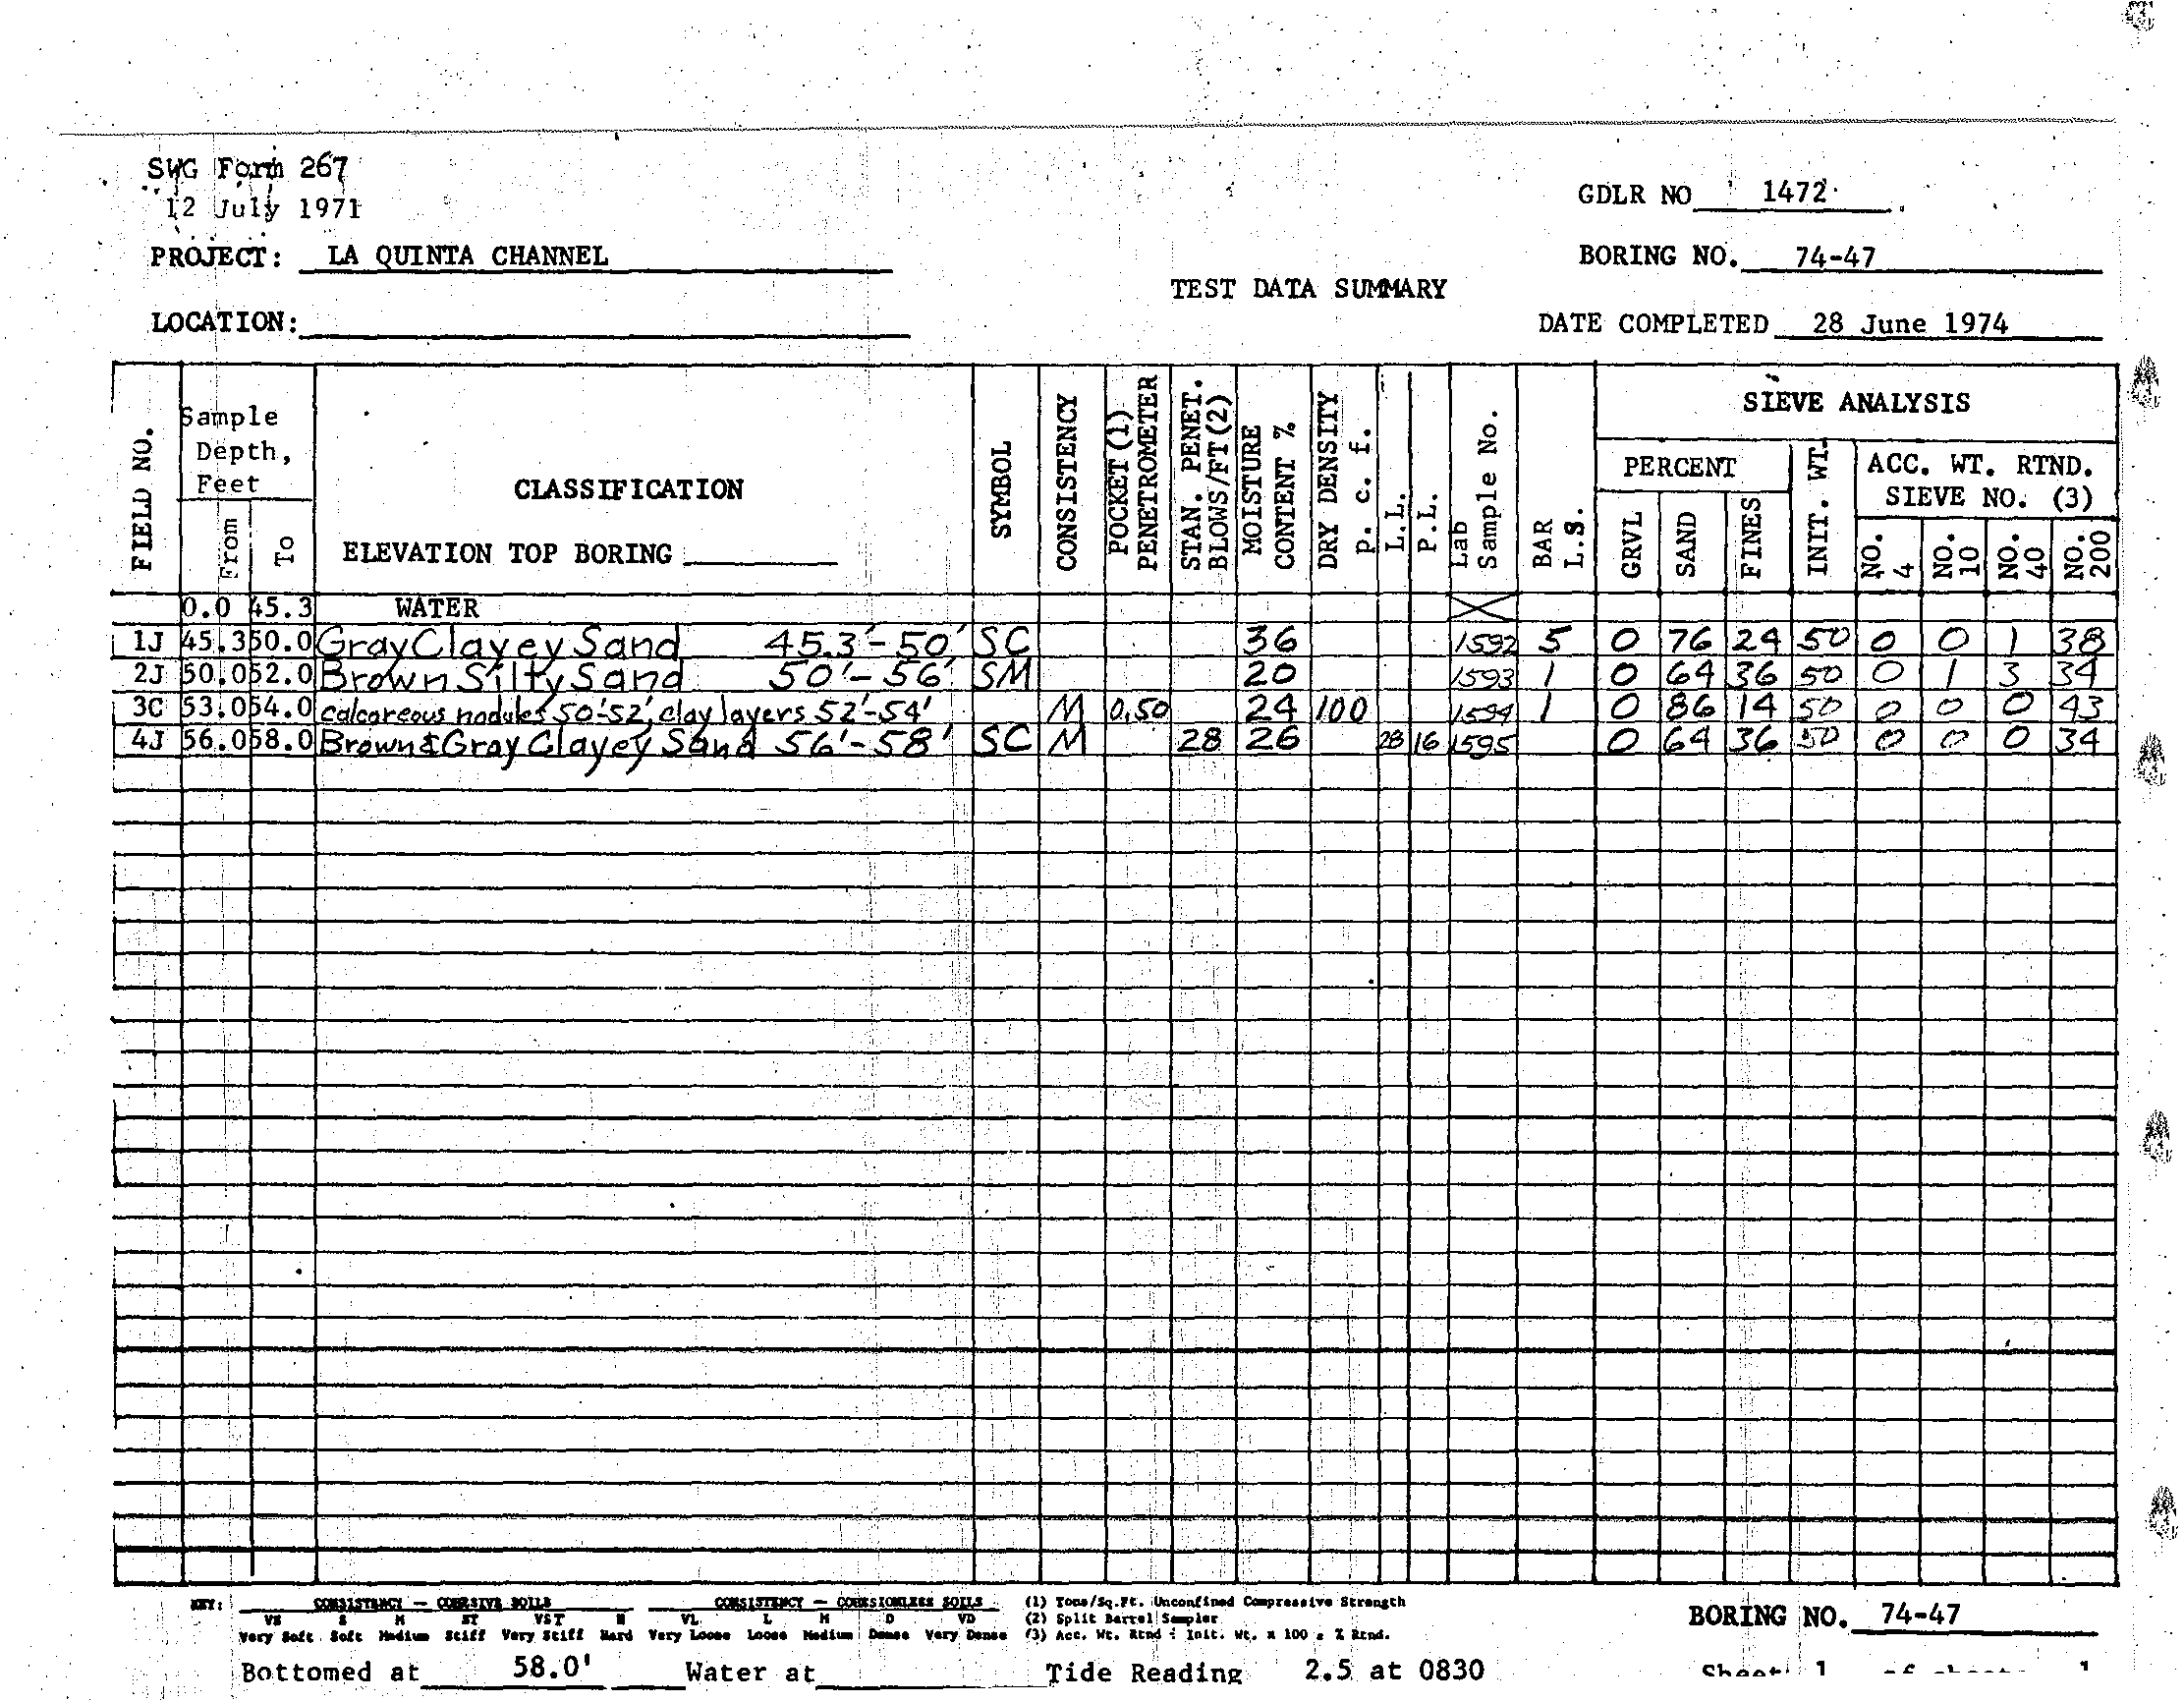 SWG Form 267
12 July 1971
GDLR NO 1472
PROJECT: LA QUINTA CHANNEL
BORING NO. 74-47
TEST DATA SUMMARY
LOCATION:
DATE COMPLETED 28 June 1974
FIELD NO.
Sample Depth, Feet
From
To
CLASSIFICATION
ELEVATION TOP BORING
SYMBOL
CONSISTENCY
POCKET (1) PENETROMETER
STAN. PENET. BLOWS/FT (2)
MOISTURE CONTENT %
DRY DENSITY p. c. f.
L.L.
P.L.
Lab Sample No.
BAR L.S.
SIEVE ANALYSIS
PERCENT
GRVL
SAND
FINES
INIT. WT.
ACC. WT. RTND.
SIEVE NO. (3)
NO. 4
NO. 10
NO. 40
NO. 200
0.0 45.3 WATER
1J 45.3 50.0 Gray Clayey Sand 45.3'-50' SC 36 1592 5 0 76 24 50 0 0 1 38
2J 50.0 52.0 Brown Silty Sand 50'-56' SM 20 1593 1 0 64 36 50 0 1 3 34
3C 53.0 54.0 calcareous nodules 50'-52', clay layers 52'-54' M 0.50 24 100 1594 1 0 86 14 50 0 0 0 43
4J 56.0 58.0 Brown & Gray Clayey Sand 56'-58' SC M 28 26 28 16 1595 0 64 36 50 0 0 0 34
KEY: CONSISTENCY — COHESIVE SOILS CONSISTENCY — COHESIONLESS SOILS (1) Tons/Sq.Ft. Unconfined Compressive Strength
VS S M ST VST H VL L M D VD (2) Split Barrel Sampler
Very Soft Soft Medium Stiff Very Stiff Hard Very Loose Loose Medium Dense Very Dense (3) Acc. Wt. Rtnd ÷ Init. Wt. x 100 = % Rtnd.
BORING NO. 74-47
Bottomed at 58.0' Water at Tide Reading 2.5 at 0830 Sheet 1 of sheets 1